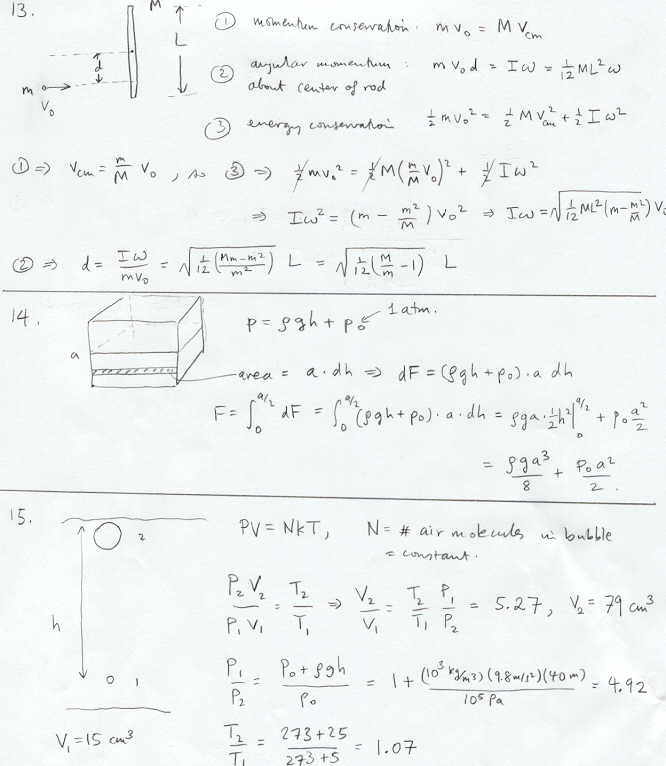 13.
M
L
d
m
V₀
① momentum conservation. m v₀ = M V_cm
② angular momentum : m v₀ d = I ω = 1/12 ML² ω
about center of rod
③ energy conservation 1/2 m v₀² = 1/2 M V_cm² + 1/2 I ω²
① ⇒ V_cm = m/M V₀ , so ③ ⇒ 1/2 m v₀² = 1/2 M (m/M V₀)² + 1/2 I ω²
⇒ I ω² = (m − m²/M) V₀² ⇒ I ω = √(1/12 ML² (m − m²/M)) V₀
② ⇒ d = Iω/mV₀ = √(1/12 (Mm − m²/m²)) L = √(1/12 (M/m − 1)) L
14.
a
p = ρgh + p₀ 1 atm.
area = a · dh ⇒ dF = (ρgh + p₀) · a dh
F = ∫₀^{a/2} dF = ∫₀^{a/2} (ρgh + p₀) · a · dh = ρga · 1/2 h² |₀^{a/2} + p₀ a²/2
= ρga³/8 + P₀a²/2 .
15.
2
h
1
V₁ = 15 cm³
PV = NkT, N = # air molecules in bubble
= constant.
P₂V₂/P₁V₁ = T₂/T₁ ⇒ V₂/V₁ = T₂/T₁ P₁/P₂ = 5.27, V₂ = 79 cm³
P₁/P₂ = P₀ + ρgh/P₀ = 1 + (10³ kg/m3)(9.8 m/s²)(40 m)/10⁵ Pa = 4.92
T₂/T₁ = 273+25/273+5 = 1.07